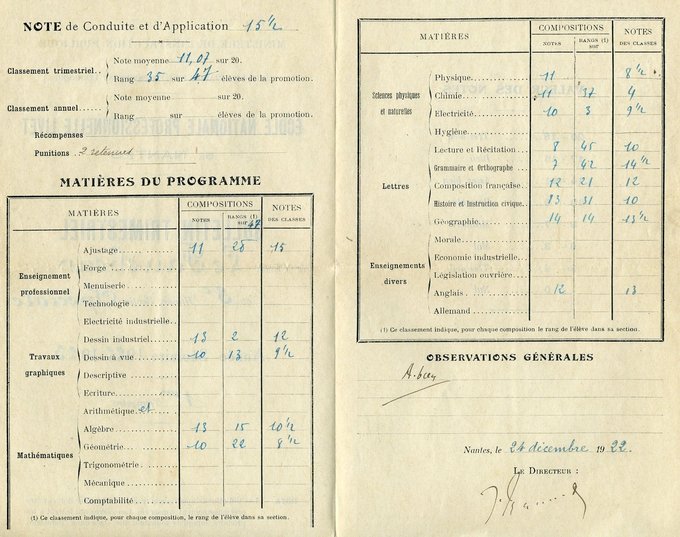 NOTE de Conduite et d'Application 15 1/2
Classement trimestriel. Note moyenne 11,07 sur 20.
Rang 35 sur 47 élèves de la promotion.
Classement annuel. Note moyenne sur 20.
Rang sur élèves de la promotion.
Récompenses
Punitions 2 retenues
MATIÈRES DU PROGRAMME
MATIÈRES COMPOSITIONS NOTES
NOTES RANGS (1) sur 47 DES CLASSES
Enseignement professionnel
Ajustage 11 28 15
Forge
Menuiserie
Technologie
Electricité industrielle
Travaux graphiques
Dessin industriel 13 2 12
Dessin à vue 10 13 9 1/2
Descriptive
Ecriture
Mathématiques
Arithmétique et
Algèbre 13 15 10 1/2
Géométrie 10 22 8 1/2
Trigonométrie
Mécanique
Comptabilité
(1) Ce classement indique, pour chaque composition, le rang de l'élève dans sa section.
MATIÈRES COMPOSITIONS NOTES
NOTES RANGS (1) sur DES CLASSES
Sciences physiques et naturelles
Physique 11 8 1/2
Chimie 11 37 4
Electricité 10 3 9 1/2
Hygiène
Lettres
Lecture et Récitation 8 45 10
Grammaire et Orthographe 7 42 14 1/2
Composition française 12 21 12
Histoire et Instruction civique 13 31 10
Géographie 14 14 13 1/2
Enseignements divers
Morale
Economie industrielle
Législation ouvrière
Anglais 12 13
Allemand
(1) Ce classement indique, pour chaque composition le rang de l'élève dans sa section.
OBSERVATIONS GÉNÉRALES
A. bien
Nantes, le 24 décembre 1922.
LE DIRECTEUR :